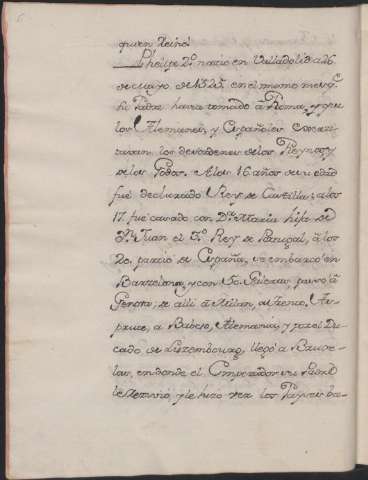 quien Reinó
Phelipe 2.º nacio en Valladolid a 26
de Mayo de 1527, en el mismo mes q.
su Padre havia tomado à Roma, y que
los Alemanes, y Españoles
los desordenes de los Reynos, y
de los Godos. A los 16 años de su edad
fué declarado Rey de Castilla; a los
17. fué casado con D.ª Maria hija de
D.n Juan el 3.º Rey de Portugal, à los
20. partio de España, se embarcò en
Barcelona, y con 50. Galeras, passo à
Genova; de alli à Milan, a Trento,
a Alemania, y por el Du-
cado de Luxembourg, llegó a Bruse-
las, en donde el Emperador su Padre
y le hizo ver los Payses ba-